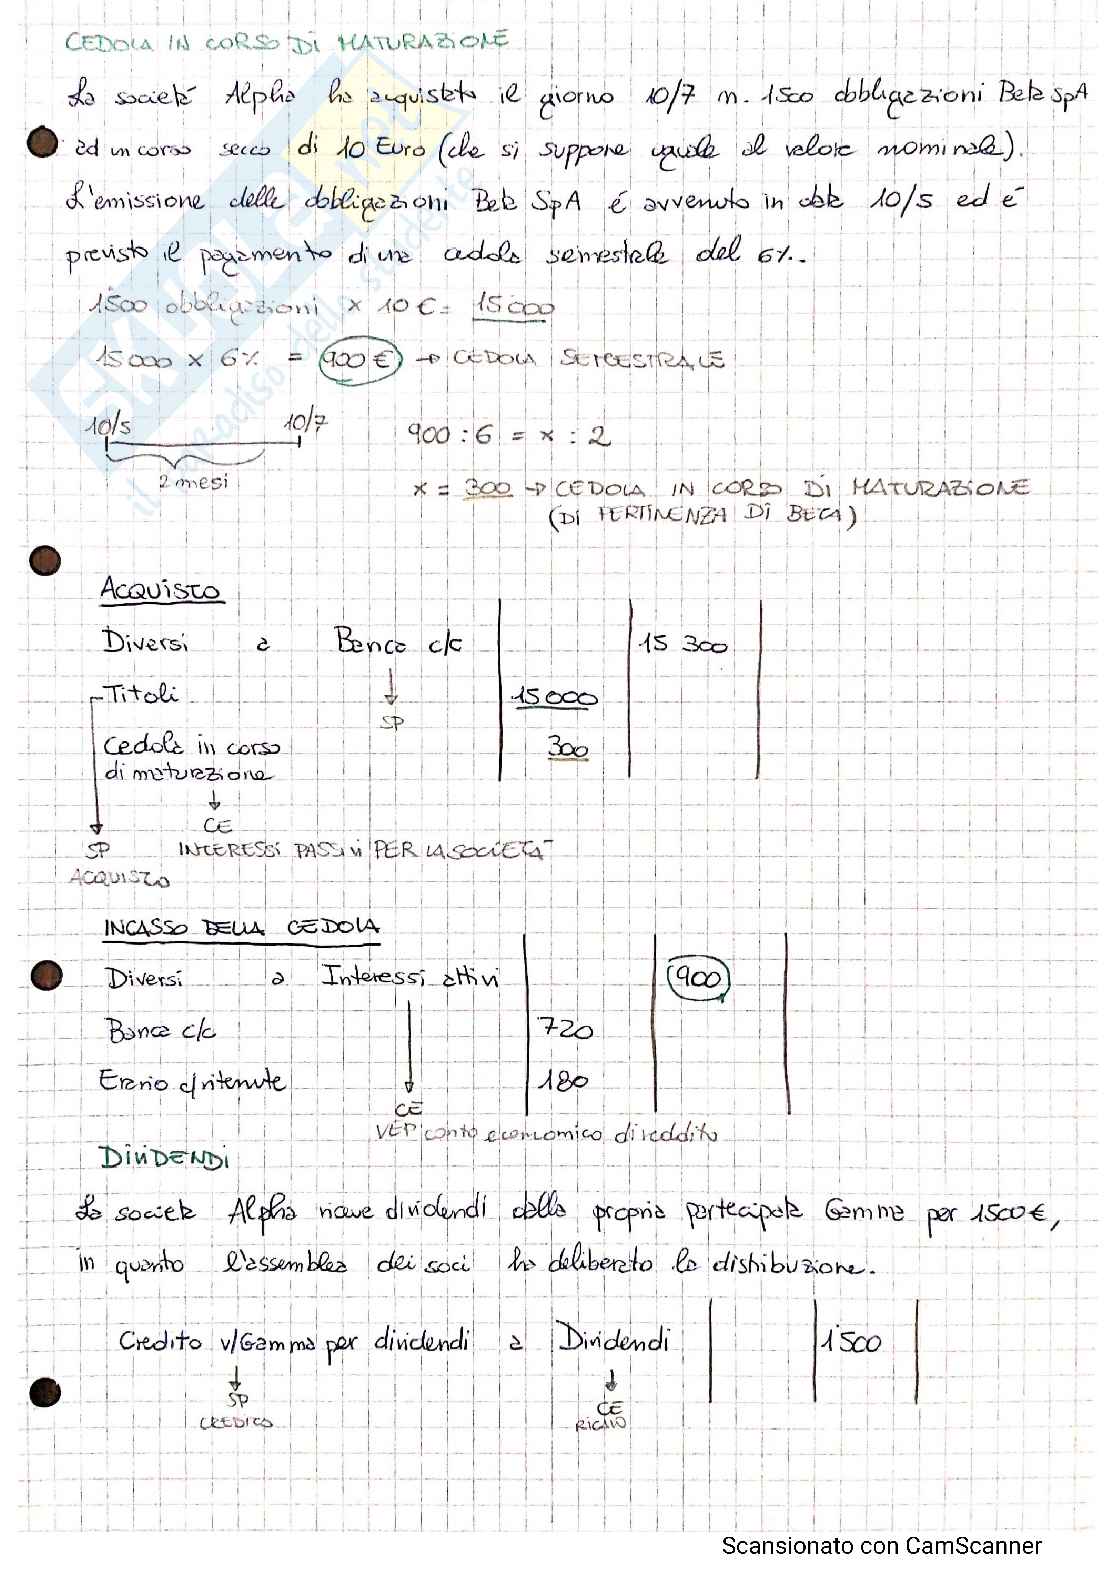 CEDOLA IN CORSO DI MATURAZIONE
La società Alpha ha acquistato il giorno 10/7 n. 1500 obbligazioni Beta SpA
ad un corso secco di 10 Euro (che si suppone uguale al valore nominale).
L'emissione delle obbligazioni Beta SpA é avvenuto in data 10/5 ed é
previsto il pagamento di una cedola semestrale del 6%.
1500 obbligazioni x 10 € = 15000
15000 x 6% = 900 € → CEDOLA SEMESTRALE
10/5 10/7 900 : 6 = x : 2
2 mesi
x = 300 → CEDOLA IN CORSO DI MATURAZIONE
(DI PERTINENZA DI BETA)
ACQUISTO
Diversi a Banca c/c 15 300
Titoli 15000
SP
Cedola in corso 300
di maturazione
CE
SP INTERESSI PASSIVI PER LA SOCIETÀ
ACQUISTO
INCASSO DELLA CEDOLA
Diversi a Interessi attivi 900
Banca c/c 720
Erario c/ritenute 180
CE
VEP conto economico di reddito
DIVIDENDI
La società Alpha riceve dividendi dalla propria partecipata Gamma per 1500 €,
in quanto l'assemblea dei soci ha deliberato la distribuzione.
Credito v/Gamma per dividendi a Dividendi 1500
SP CE
CREDITO RICAVO
SKUOLA.net
il paradiso dello studente
Scansionato con CamScanner